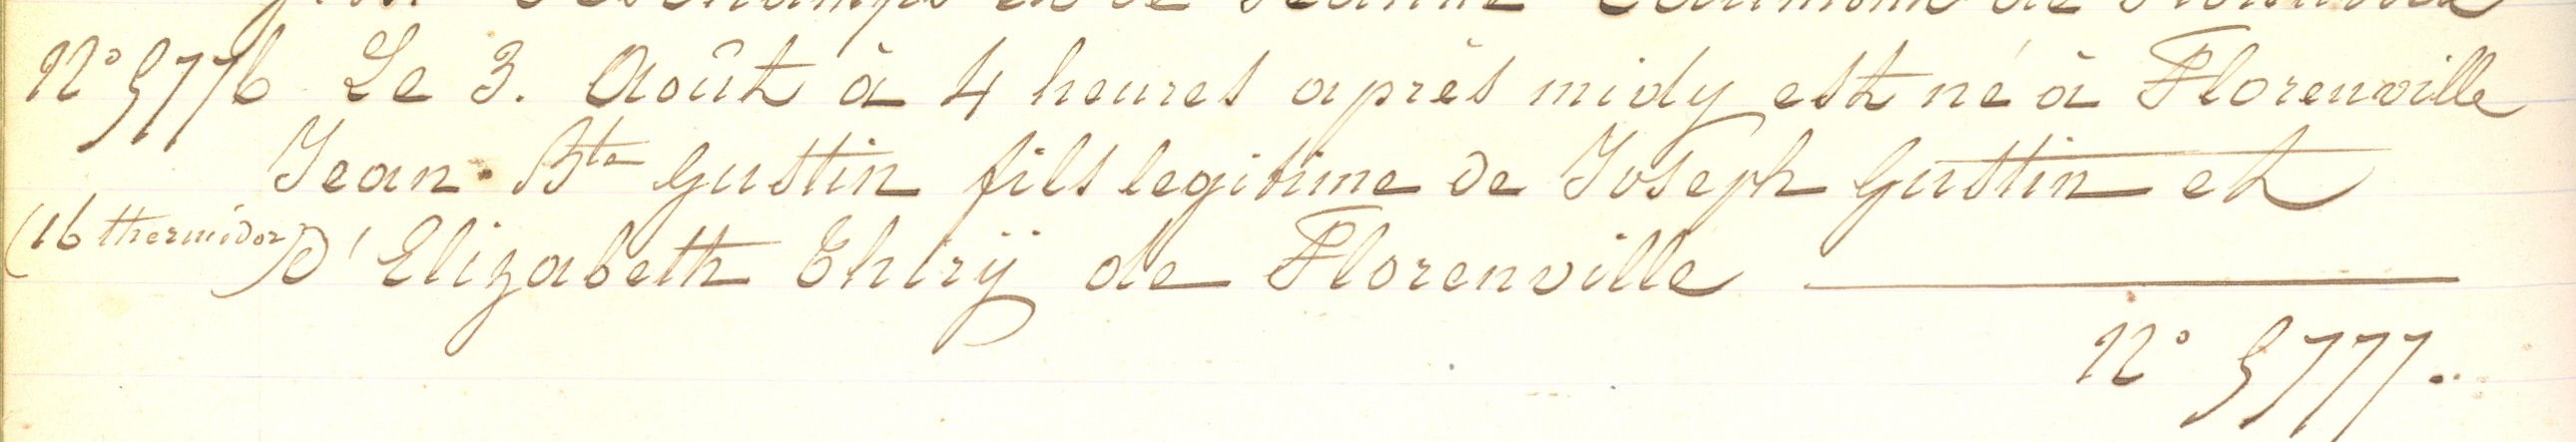 N° 5776 Le 3. Août à 4 heures après midy est né à Florenville
Jean Bte Gustin fils legitime de Joseph Gustin et
(16 thermidor) d'Elizabeth Thirÿ de Florenville
N° 5777.